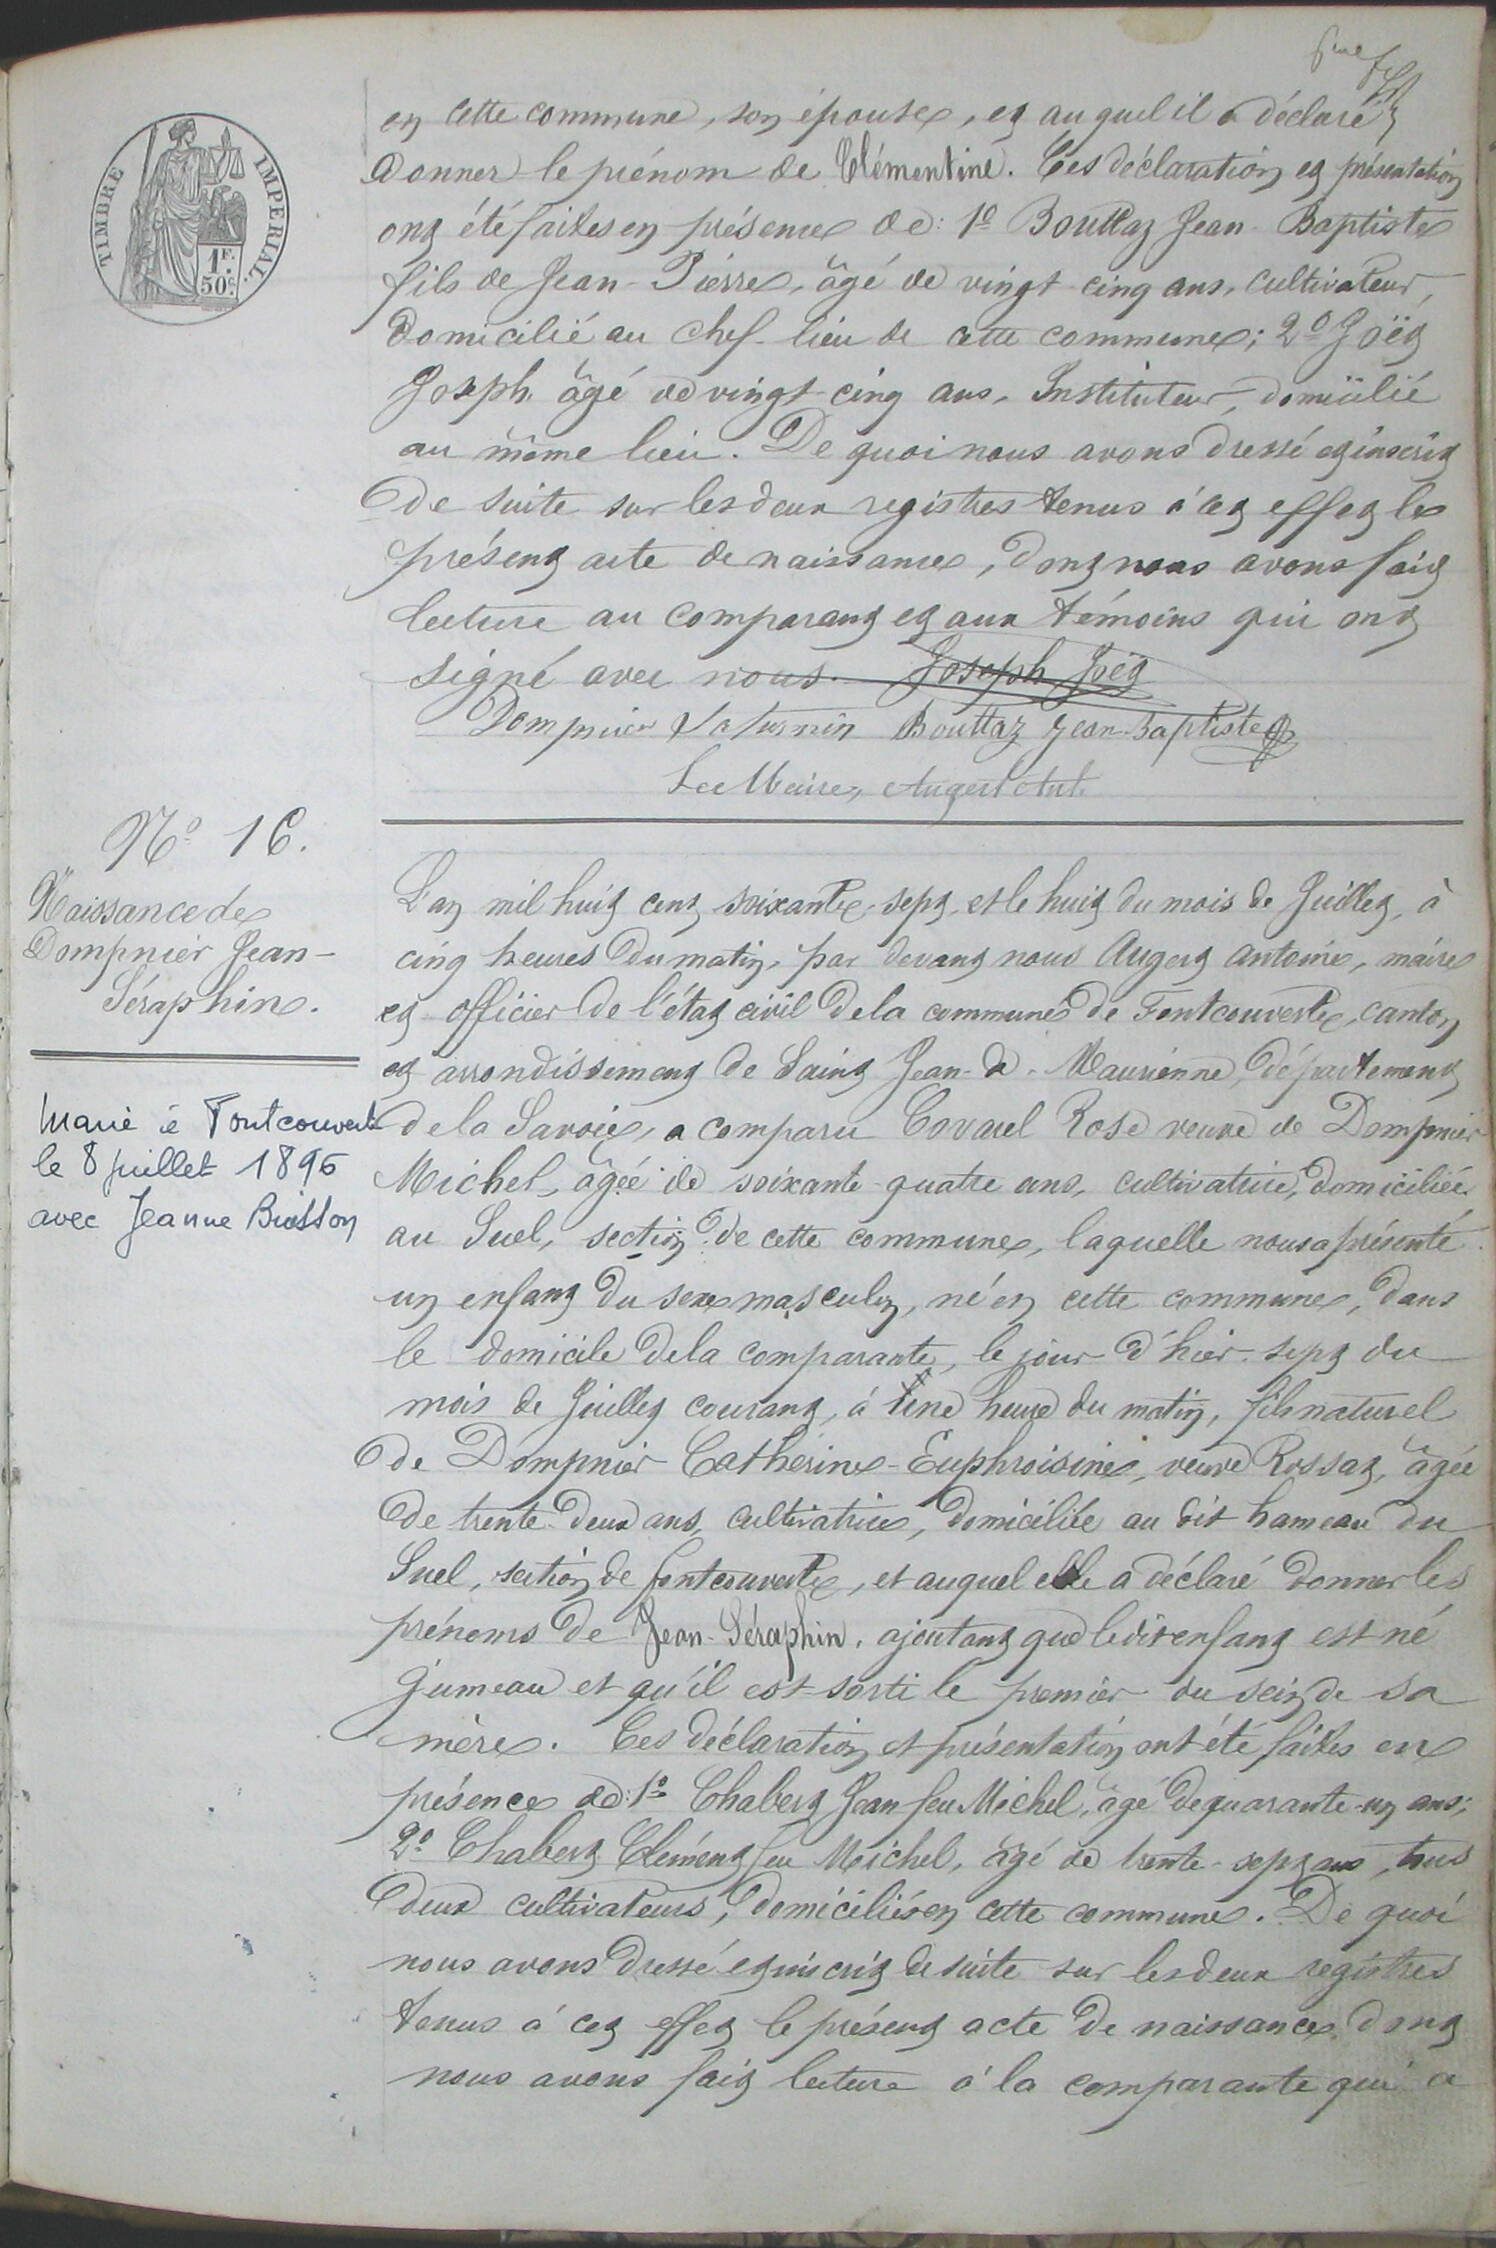 6me
TIMBRE IMPERIAL.
1F. 50c.
en cette commune, son épouse, et auquel il a déclaré
donner le prénom de Clémentine. Ces déclaration et présentation
ont été faites en présence de: 1º Bouttaz Jean-Baptiste
fils de Jean-Pierre, âgé de vingt-cinq ans, cultivateur,
domicilié au chef-lieu de cette commune; 2º Joët
Joseph, âgé de vingt-cinq ans, Instituteur, domicilié
au même lieu. De quoi nous avons dressé et inscrit
de suite sur les deux registres tenus à cet effet le
présent acte de naissance, dont nous avons fait
lecture au comparant et aux témoins qui ont
signé avec nous. Joseph Joët
Dompnier Saturnin Bouttaz Jean-Baptiste
Le Maire, Augert Ant.
Nº 16.
Naissance de
Dompnier Jean-
Séraphin.
Marié à Fontcouverte
le 8 juillet 1896
avec Jeanne Buisson
L'an mil huit cent soixante-sept, et le huit du mois de Juillet, à
cinq heures du matin, par devant nous Augert Antoine, maire
et officier de l'état civil de la commune de Fontcouverte, canton
et arrondissement de Saint Jean-de-Maurienne, département
de la Savoie, a comparu Covarel Rose veuve de Dompnier
Michel, âgée de soixante-quatre ans, cultivatrice, domiciliée
au Suel, section de cette commune, laquelle nous a présenté
un enfant du sexe masculin, né en cette commune, dans
le domicile de la comparante, le jour d'hier sept du
mois de Juillet courant, à une heure du matin, fils naturel
de Dompnier Catherine-Euphroisine, veuve Rossat, âgée
de trente-deux ans, cultivatrice, domiciliée au dit hameau du
Suel, section de fontcouverte, et auquel elle a déclaré donner les
prénoms de Jean-Séraphin, ajoutant que le dit enfant est né
jumeau et qu'il est sorti le premier du sein de sa
mère. Ces déclaration et présentation ont été faites en
présence de: 1º Chabert Jean feu Michel, âgé de quarante-un ans;
2º Chabert Clément feu Michel, âgé de trente-sept ans, tous
deux cultivateurs, domiciliés en cette commune. De quoi
nous avons dressé et inscrit de suite sur les deux registres
tenus à cet effet le présent acte de naissance, dont
nous avons fait lecture à la comparante qui a